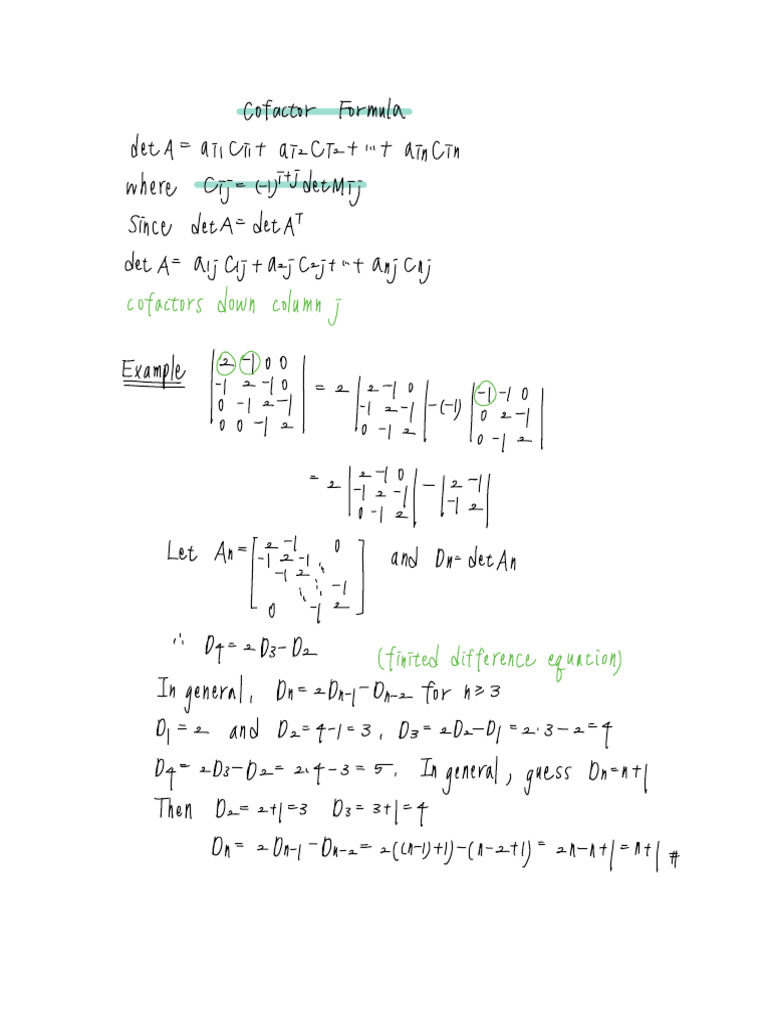 Cofactor Formula
det A = ai1 Ci1 + ai2 Ci2 + ... + ain Cin
where Cij = (-1)^i+j det Mij
Since det A = det A^T
det A = a1j C1j + a2j C2j + ... + anj Cnj
cofactors down column j
Example | 2 -1 0 0 ; -1 2 -1 0 ; 0 -1 2 -1 ; 0 0 -1 2 | = 2 | 2 -1 0 ; -1 2 -1 ; 0 -1 2 | - (-1) | -1 -1 0 ; 0 2 -1 ; 0 -1 2 |
= 2 | 2 -1 0 ; -1 2 -1 ; 0 -1 2 | - | 2 -1 ; -1 2 |
Let An = [ 2 -1 0 ; -1 2 -1 ; -1 2 ⋱ ; ⋱ ⋱ -1 ; 0 -1 2 ] and Dn = det An
∴ D4 = 2D3 - D2
(finited difference equation)
In general, Dn = 2Dn-1 - Dn-2 for n ≥ 3
D1 = 2 and D2 = 4-1 = 3, D3 = 2D2 - D1 = 2·3 - 2 = 4
D4 = 2D3 - D2 = 2·4 - 3 = 5. In general, guess Dn = n+1
Then D2 = 2+1 = 3 D3 = 3+1 = 4
Dn = 2Dn-1 - Dn-2 = 2((n-1)+1) - (n-2+1) = 2n-n+1 = n+1 #